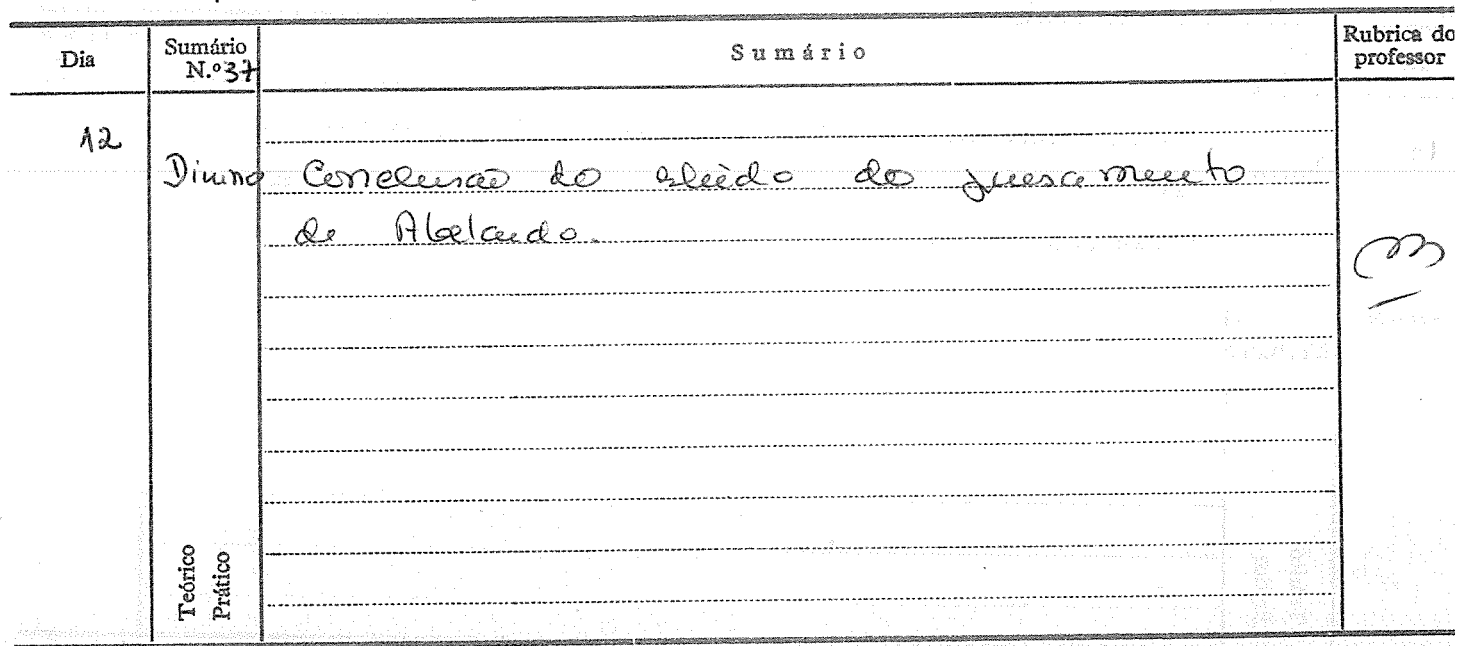 Dia
Sumário
N.º 37
Sumário
Rubrica do
professor
12
Diurno Conclusão do estudo do pensamento
de Abelardo.
Teórico
Prático